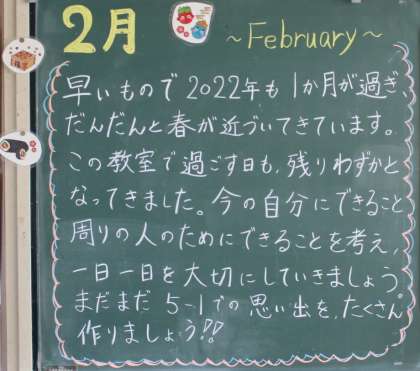 2月
～February～
早いもので2022年も1か月が過ぎ、
だんだんと春が近づいてきています。
この教室で過ごす日も、残りわずかと
なってきました。今の自分にできること、
周りの人のためにできることを考え、
一日一日を大切にしていきましょう。
まだまだ5-1での思い出を、たくさん
作りましょう!!